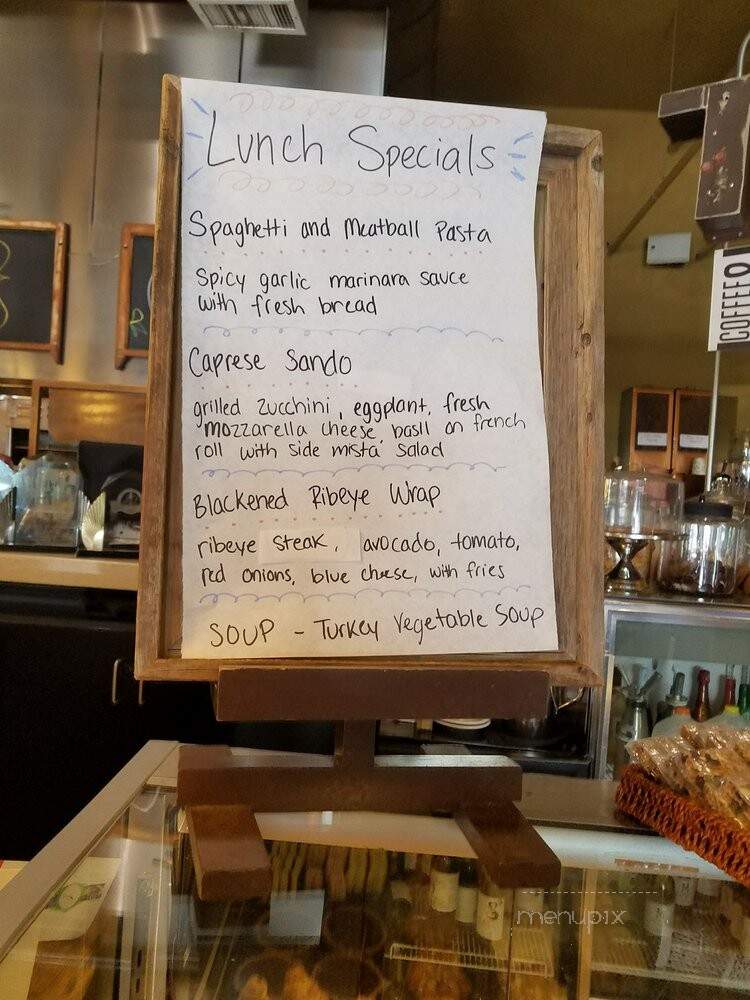 Lunch Specials
Spaghetti and Meatball Pasta
Spicy garlic marinara sauce
with fresh bread
Caprese Sando
grilled zucchini, eggplant, fresh
mozzarella cheese, basil on french
roll with side mista salad
Blackened Ribeye Wrap
ribeye steak, avocado, tomato,
red onions, blue cheese, with fries
SOUP - Turkey Vegetable Soup
COFFEE
menupix